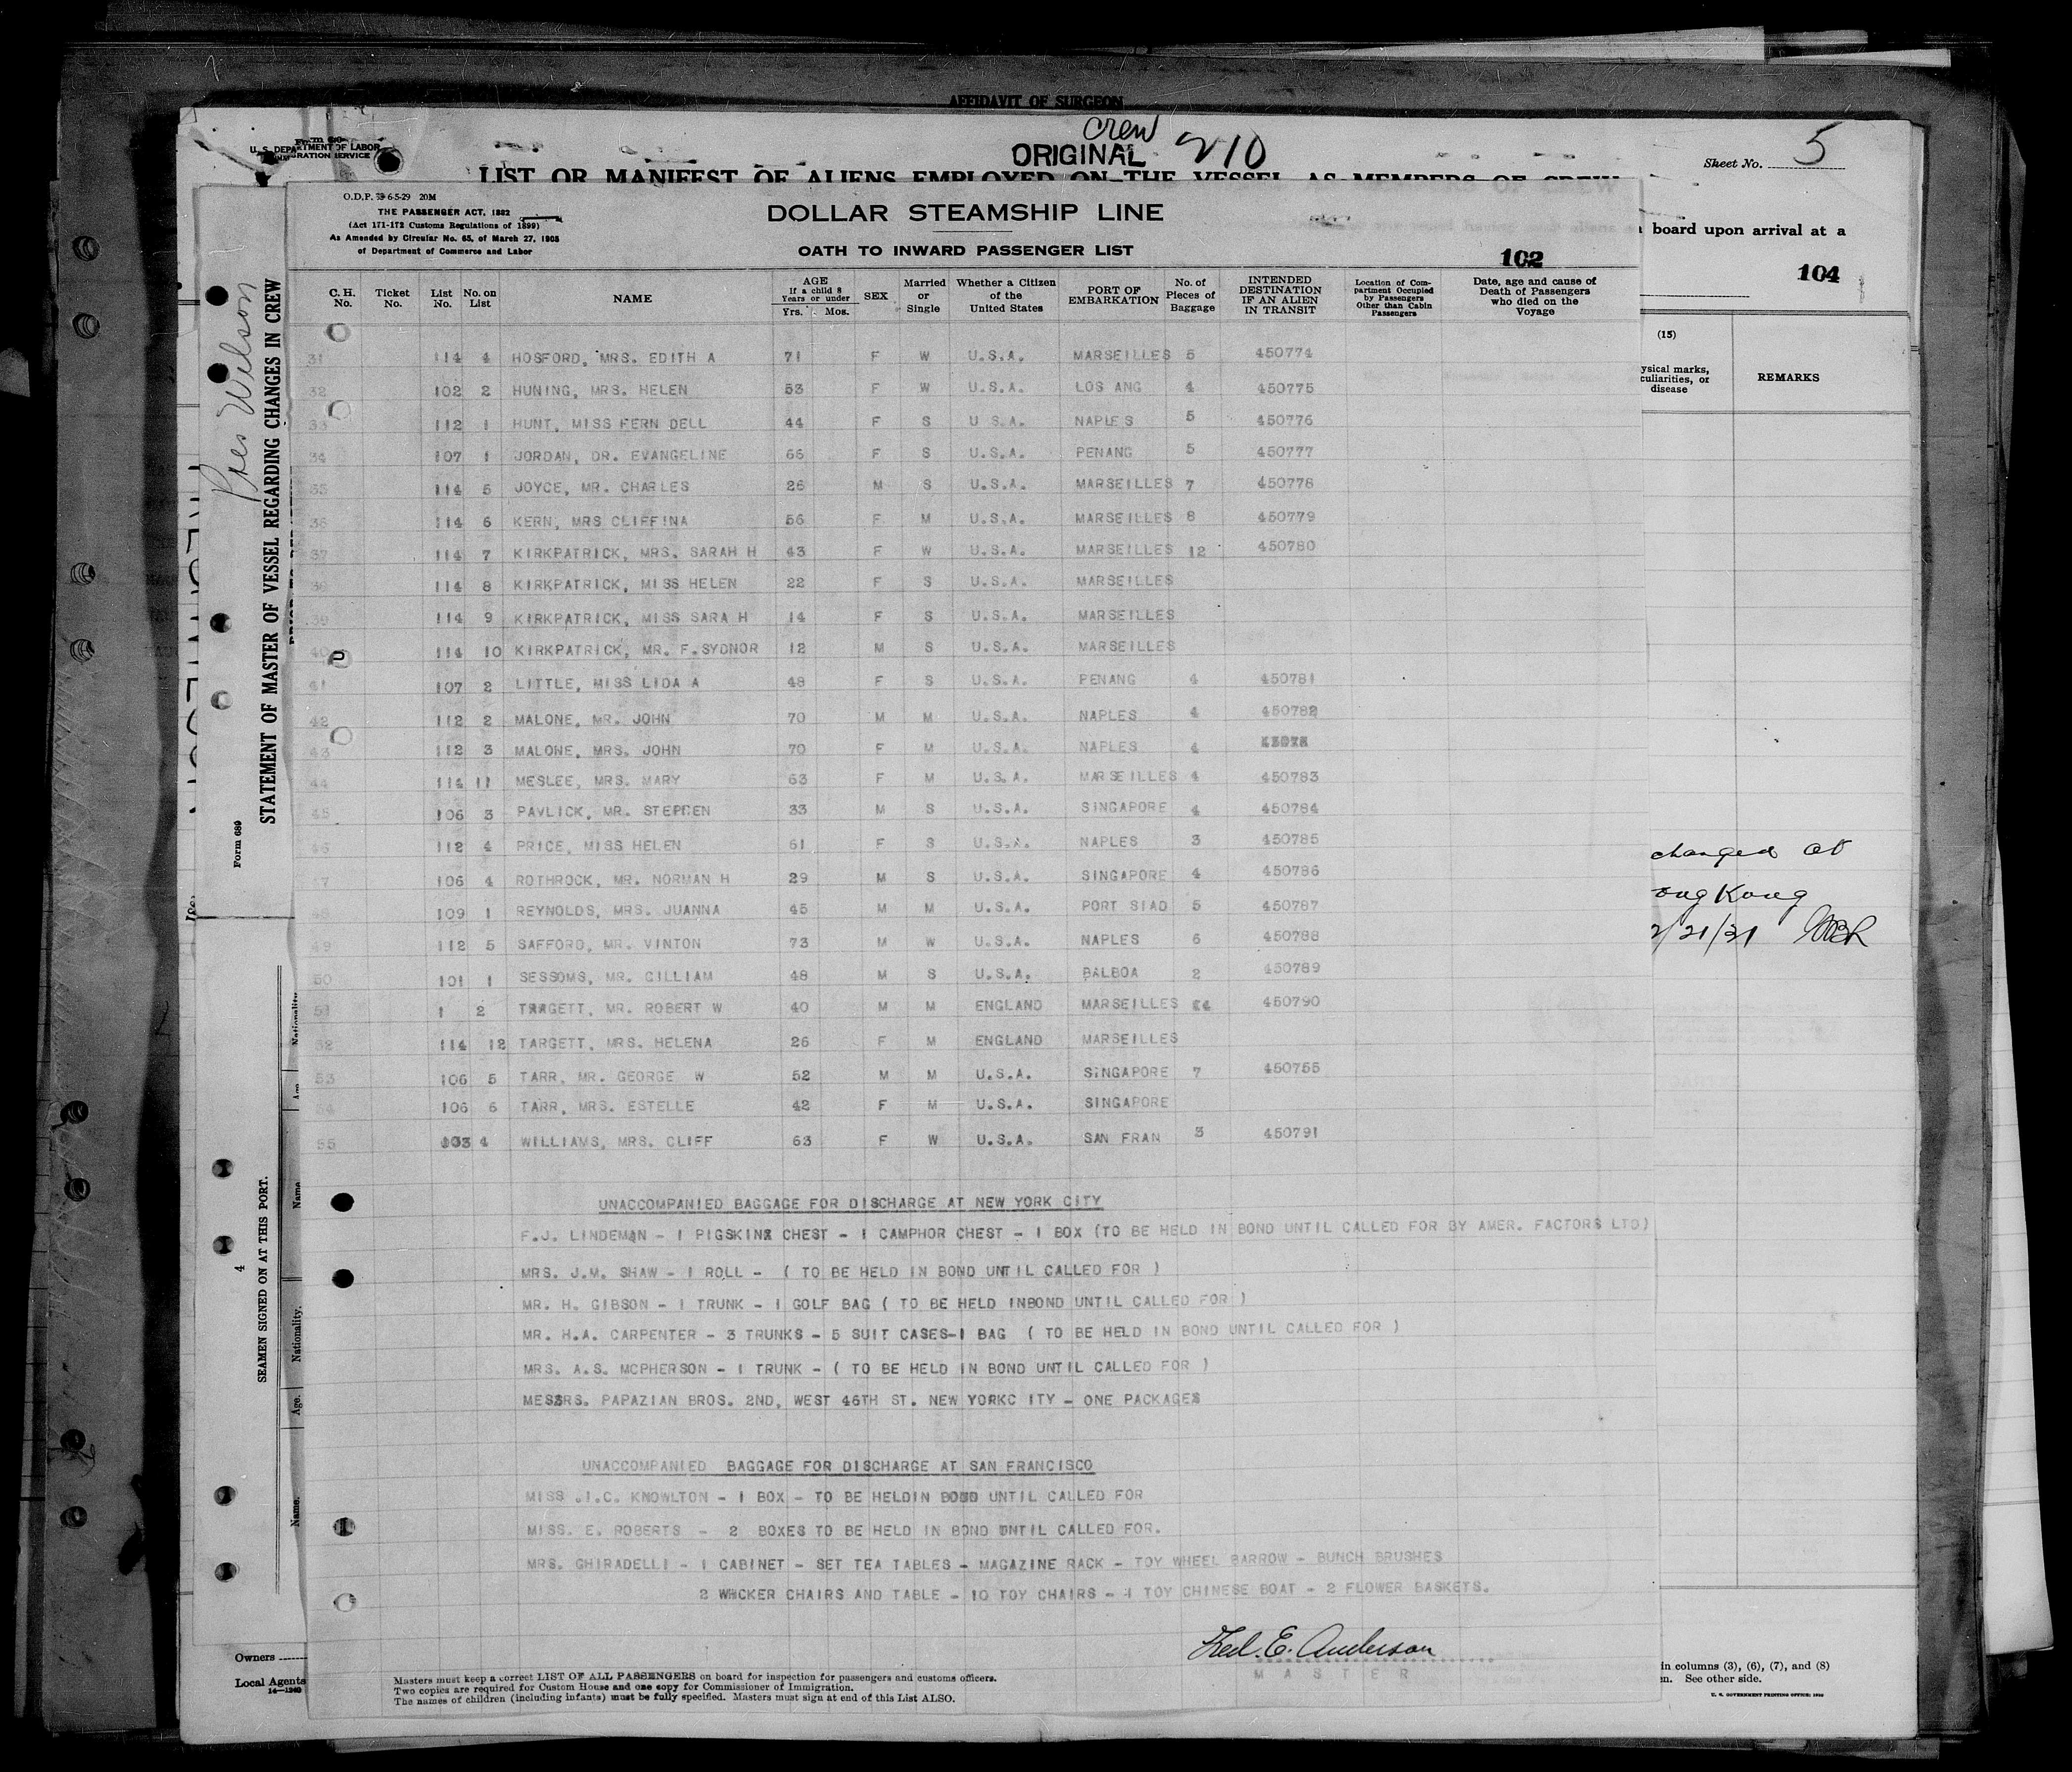 AFFIDAVIT OF SURGEON
crew
ORIGINAL 210
U. S. DEPARTMENT OF LABOR
IMMIGRATION SERVICE
Sheet No. 5
LIST OR MANIFEST OF ALIENS EMPLOYED ON THE VESSEL AS MEMBERS OF CREW
board upon arrival at a
104
(15)
REMARKS
disease
changed at
ong Kong
2/21/31
in columns (3), (6), (7), and (8)
See other side.
U. S. GOVERNMENT PRINTING OFFICE: 1930
Pres Wilson
STATEMENT OF MASTER OF VESSEL REGARDING CHANGES IN CREW
Form 689
4
SEAMEN SIGNED ON AT THIS PORT.
Nationality.
Age
Name
Nationality.
Age.
Name.
Owners
Local Agents
14—1240
O.D.P. 6-5-29 20M
THE PASSENGER ACT, 1882
(Act 171-172 Customs Regulations of 1899)
As Amended by Circular No. 65, of March 27, 1905
of Department of Commerce and Labor
DOLLAR STEAMSHIP LINE
OATH TO INWARD PASSENGER LIST
102
C. H. No. Ticket No. List No. No. on List NAME AGE If a child 8 Years or under Yrs. Mos. SEX Married or Single Whether a Citizen of the United States PORT OF EMBARKATION No. of Pieces of Baggage INTENDED DESTINATION IF AN ALIEN IN TRANSIT Location of Compartment Occupied by Passengers Other than Cabin Passengers Date, age and cause of Death of Passengers who died on the Voyage
31 114 4 HOSFORD, MRS. EDITH A 71 F W U.S.A. MARSEILLES 5 450774
32 102 2 HUNING, MRS. HELEN 53 F W U.S.A. LOS ANG 4 450775
33 112 1 HUNT, MISS FERN DELL 44 F S U S.A. NAPLES 5 450776
34 107 1 JORDAN, DR. EVANGELINE 66 F S U.S.A. PENANG 5 450777
35 114 5 JOYCE, MR. CHARLES 26 M S U.S.A. MARSEILLES 7 450778
36 114 6 KERN, MRS CLIFFINA 56 F M U.S.A. MARSEILLES 8 450779
37 114 7 KIRKPATRICK, MRS. SARAH H 43 F W U.S.A. MARSEILLES 12 450780
38 114 8 KIRKPATRICK, MISS HELEN 22 F S U.S.A. MARSEILLES
39 114 9 KIRKPATRICK, MISS SARA H 14 F S U.S.A. MARSEILLES
40 114 10 KIRKPATRICK, MR. F.SYDNOR 12 M S U.S.A. MARSEILLES
41 107 2 LITTLE, MISS LIDA A 48 F S U.S.A. PENANG 4 450781
42 112 2 MALONE, MR. JOHN 70 M M U.S.A. NAPLES 4 450782
43 112 3 MALONE, MRS. JOHN 70 F M U.S.A. NAPLES 4
44 114 11 MESLEE, MRS. MARY 63 F M U.S.A. MARSEILLES 4 450783
45 106 3 PAVLICK, MR. STEPCEN 33 M S U.S.A. SINGAPORE 4 450784
46 112 4 PRICE, MISS HELEN 61 F S U.S.A. NAPLES 3 450785
7 106 4 ROTHROCK, MR. NORMAN H 29 M S U.S.A. SINGAPORE 4 450786
48 109 1 REYNOLDS, MRS. JUANNA 45 M M U.S.A. PORT SIAD 5 450787
49 112 5 SAFFORD, MR. VINTON 73 M W U.S.A. NAPLES 6 450788
50 101 1 SESSOMS, MR. GILLIAM 48 M S U.S.A. BALBOA 2 450789
51 1 2 TARGETT, MR. ROBERT W 40 M M ENGLAND MARSEILLES 14 450790
52 114 12 TARGETT, MRS. HELENA 26 F M ENGLAND MARSEILLES
53 106 5 TARR, MR. GEORGE W 52 M M U.S.A. SINGAPORE 7 450755
54 106 6 TARR, MRS. ESTELLE 42 F M U.S.A. SINGAPORE
55 103 4 WILLIAMS, MRS. CLIFF 63 F W U.S.A. SAN FRAN 3 450791
UNACCOMPANIED BAGGAGE FOR DISCHARGE AT NEW YORK CITY
F.J. LINDEMAN - 1 PIGSKIN CHEST - 1 CAMPHOR CHEST - 1 BOX (TO BE HELD IN BOND UNTIL CALLED FOR BY AMER. FACTORS LTD)
MRS. J.M. SHAW - 1 ROLL - ( TO BE HELD IN BOND UNTIL CALLED FOR )
MR. H. GIBSON - 1 TRUNK - 1 GOLF BAG ( TO BE HELD INBOND UNTIL CALLED FOR )
MR. H.A. CARPENTER - 3 TRUNKS - 5 SUIT CASES-1 BAG ( TO BE HELD IN BOND UNTIL CALLED FOR )
MRS. A.S. MCPHERSON - 1 TRUNK - ( TO BE HELD IN BOND UNTIL CALLED FOR )
MESSRS. PAPAZIAN BROS. 2ND, WEST 46TH ST. NEW YORKC ITY - ONE PACKAGES
UNACCOMPANIED BAGGAGE FOR DISCHARGE AT SAN FRANCISCO
MISS .I.C. KNOWLTON - 1 BOX - TO BE HELDIN BOND UNTIL CALLED FOR
MISS. E. ROBERTS - 2 BOXES TO BE HELD IN BOND UNTIL CALLED FOR.
MRS. GHIRADELLI - 1 CABINET - SET TEA TABLES - MAGAZINE RACK - TOY WHEEL BARROW - BUNCH BRUSHES
2 WICKER CHAIRS AND TABLE - 10 TOY CHAIRS - 1 TOY CHINESE BOAT - 2 FLOWER BASKETS.
Fred. E. Anderson
MASTER
Masters must keep a correct LIST OF ALL PASSENGERS on board for inspection for passengers and customs officers.
Two copies are required for Custom House and one copy for Commissioner of Immigration.
The names of children (including infants) must be fully specified. Masters must sign at end of this List ALSO.